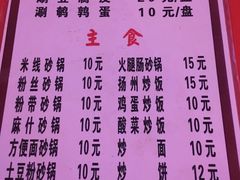 涮鹌鹑蛋 10元/盘
主食
米线砂锅 10元 火腿肠砂锅 15元
粉丝砂锅 10元 扬州炒饭 15元
粉带砂锅 10元 鸡蛋炒饭 10元
麻什砂锅 10元 酸菜炒饭 10元
方便面砂锅 10元 炒面 10元
土豆粉砂锅 10元 炒饼 12元